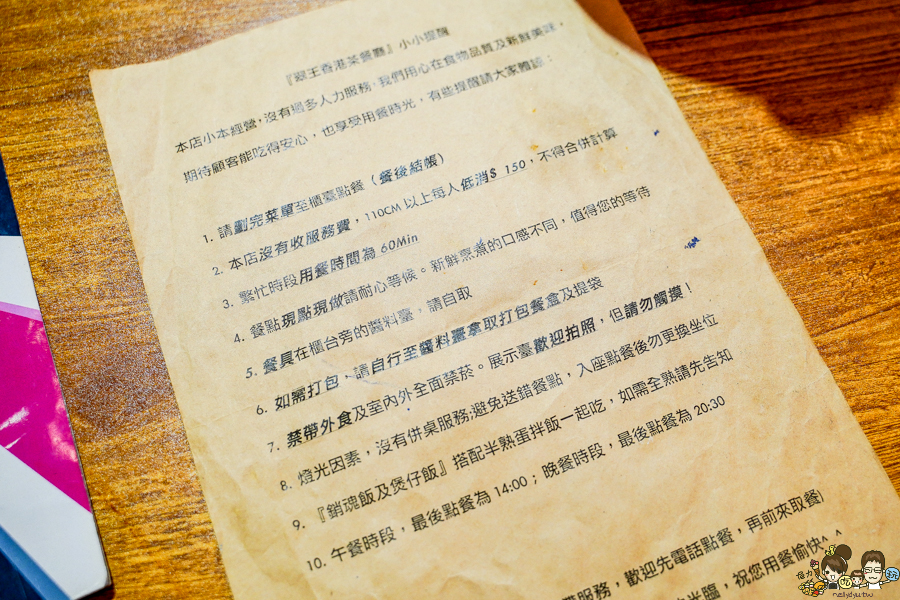 『猴王香港茶餐廳』小小提醒
本店小本經營，沒有過多人力服務，我們用心在食物品質及新鮮美味，
期待顧客能吃得安心，也享受用餐時光，有些提醒請大家體諒：
1. 請劃完菜單至櫃臺點餐（餐後結帳）
2. 本店沒有收服務費，110CM 以上每人低消$ 150，不得合併計算
3. 繁忙時段用餐時間為 60Min
4. 餐點現點現做請耐心等候。新鮮烹煮的口感不同，值得您的等待
5. 餐具在櫃台旁的醬料臺，請自取
6. 如需打包，請自行至醬料臺拿取打包餐盒及提袋
7. 禁帶外食及室內外全面禁菸。展示臺歡迎拍照，但請勿觸摸！
8. 燈光因素，沒有併桌服務;避免送錯餐點，入座點餐後勿更換坐位
9. 『銷魂飯及煲仔飯』搭配半熟蛋拌飯一起吃，如需全熟請先告知
10. 午餐時段，最後點餐為 14:00；晚餐時段，最後點餐為 20:30
服務，歡迎先電話點餐，再前來取餐)
光臨，祝您用餐愉快^ ^
nellydyu.tw